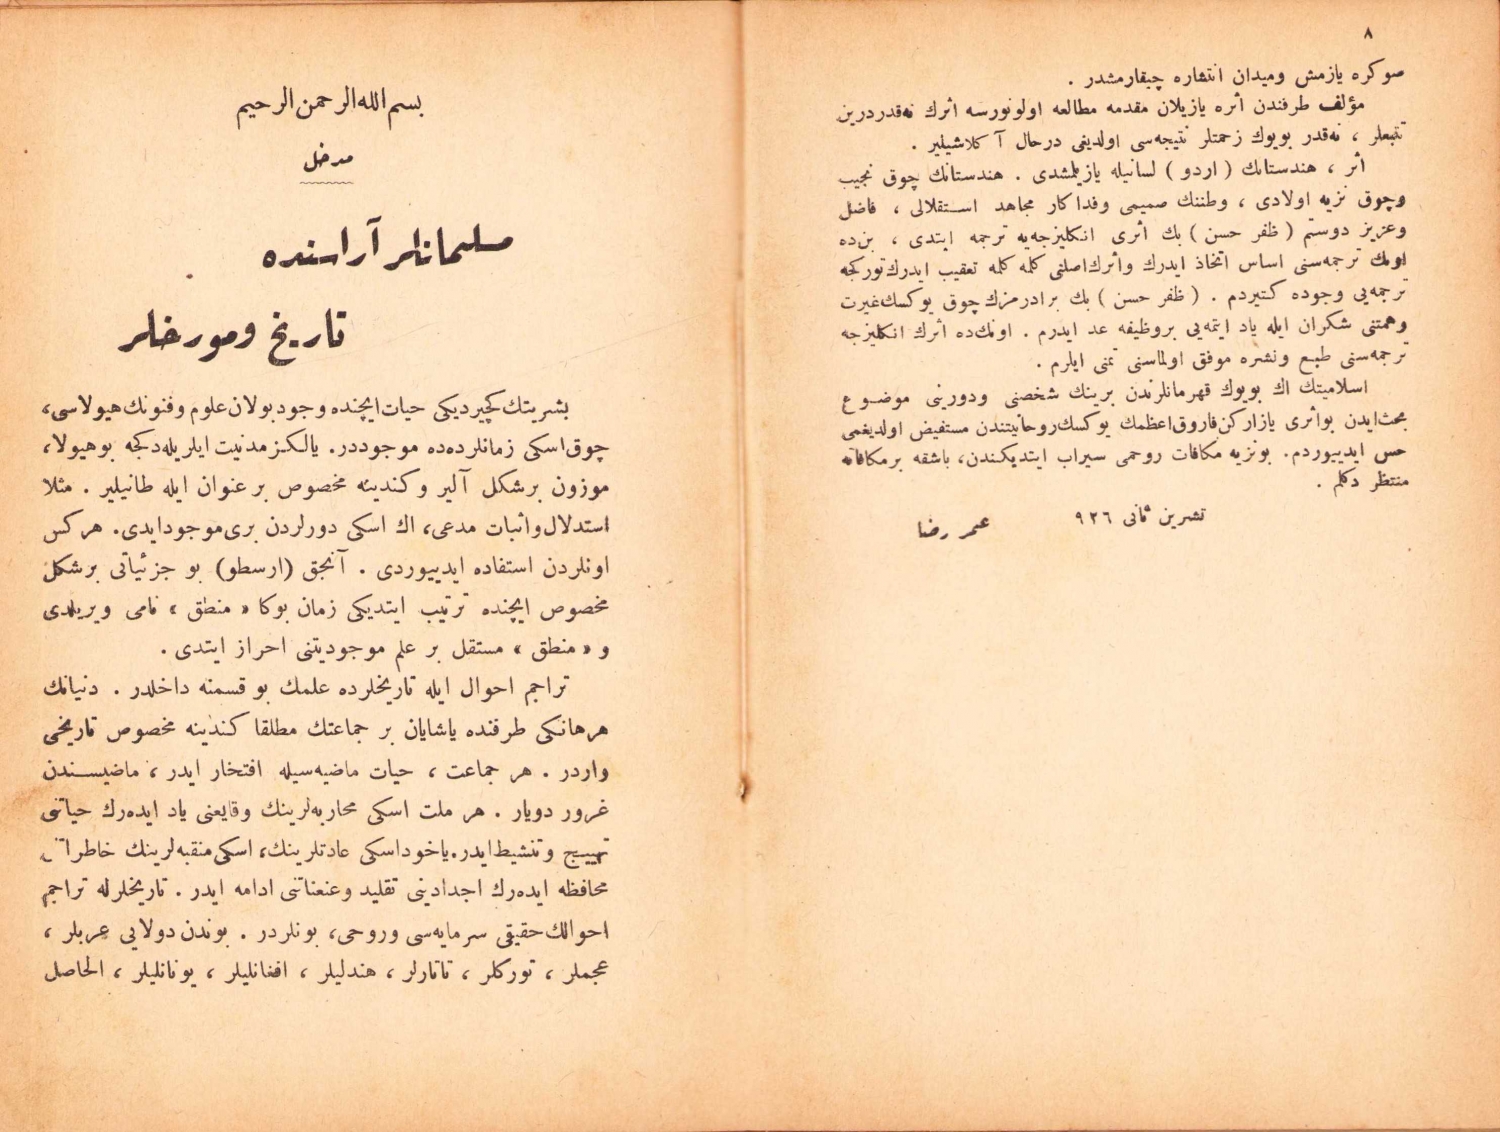 ٨
صوكره يازمش وميدان انتشاره چيقارمشدر .
مؤلف طرفندن أثره يازيلان مقدمه مطالعه اولونورسه أثرك نه‌قدردرين
تتبعلر ، نه‌قدر بويوك زحمتلر نتيجه‌سى اولديغى درحال آ كلاشيلير .
أثر ، هندستانك ( اردو ) لسانيله يازيلمشدى . هندستانك چوق نجيب
وچوق نزيه اولادى ، وطننك صميمى وفداكار مجاهد استقلالى ، فاضل
وعزيز دوستم ( ظفر حسن ) بك أثرى انكليزجه‌يه ترجمه ايتدى ، بن‌ده
اونك ترجمه‌سنى اساس اتخاذ ايدرك وأثرك‌اصلنى كلمه كلمه تعقيب ايدرك‌توركجه
ترجمه‌يى وجوده كتيردم . ( ظفر حسن ) بك برادرمزك چوق يوكسك‌غيرت
وهمتنى شكران ايله ياد ايتمه‌يى بروظيفه عد ايدرم . اونك‌ده أثرك انكليزجه
ترجمه‌سنى طبع ونشره موفق اولماسنى تمنى ايلرم .
اسلاميتك اك بويوك قهرمانلرندن برينك شخصنى ودورينى موضوع
بحث‌ايدن بوأثرى يازاركن‌فاروق‌اعظمك يوكسك‌روحانيتندن مستفيض اولديغمى
حس ايدييوردم. بونزيه مكافات روحمى سيراب ايتديكندن، باشقه برمكافاته
منتظر دكلم .
تشرين ثانى ٩٢٦
عمر رضا
بسم الله الرحمن الرحيم
مدخل
مسلمانلر آراسنده
تاريخ ومورخلر
بشريتك كچيرديكى حيات‌ايچنده وجودبولان‌علوم وفنونك‌هيولاسى،
چوق‌اسكى زمانلرده‌ده موجوددر. يالكزمدنيت ايلريله‌دكجه بوهيولا،
موزون برشكل آلير وكندينه مخصوص برعنوان ايله طانيلير . مثلا
استدلال‌واثبات مدعى، اك اسكى دورلردن برى‌موجودايدى. هركس
اونلردن استفاده ايدييوردى . آنجق (ارسطو) بو جزئياتى برشكل
مخصوص ايچنده ترتيب ايتديكى زمان بوكا « منطق » نامى ويريلدى
و « منطق » مستقل بر علم موجوديتنى احراز ايتدى .
تراجم احوال ايله تاريخلرده علمك بو قسمنه داخلدر . دنيانك
هرهانكى طرفنده ياشايان بر جماعتك مطلقا كندينه مخصوص تاريخى
واردر . هر جماعت ، حيات ماضيه‌سيله افتخار ايدر ، ماضيسندن
غرور دويار . هر ملت اسكى محاربه‌لرينك وقايعنى ياد ايده‌رك حياتنى
تهييج وتنشيط‌ايدر.ياخوداسكى عادتلرينك، اسكى‌منقبه‌لرينك خاطراتنى
محافظه ايده‌رك اجدادينى تقليد وعنعناتنى ادامه ايدر . تاريخلرله تراجم
احوالك‌حقيقى سرمايه‌سى وروحى، بونلردر . بوندن دولايى عربلر ،
عجملر ، توركلر ، تاتارلر ، هندليلر ، افغانليلر ، يونانليلر ، الحاصل